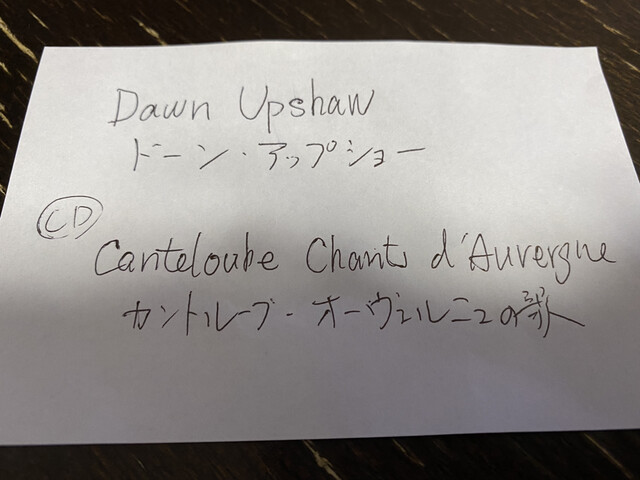 Dawn Upshaw
ドーン・アップショー
CD
Canteloube Chants d'Auvergne
カントルーブ・オーヴェルニュの歌